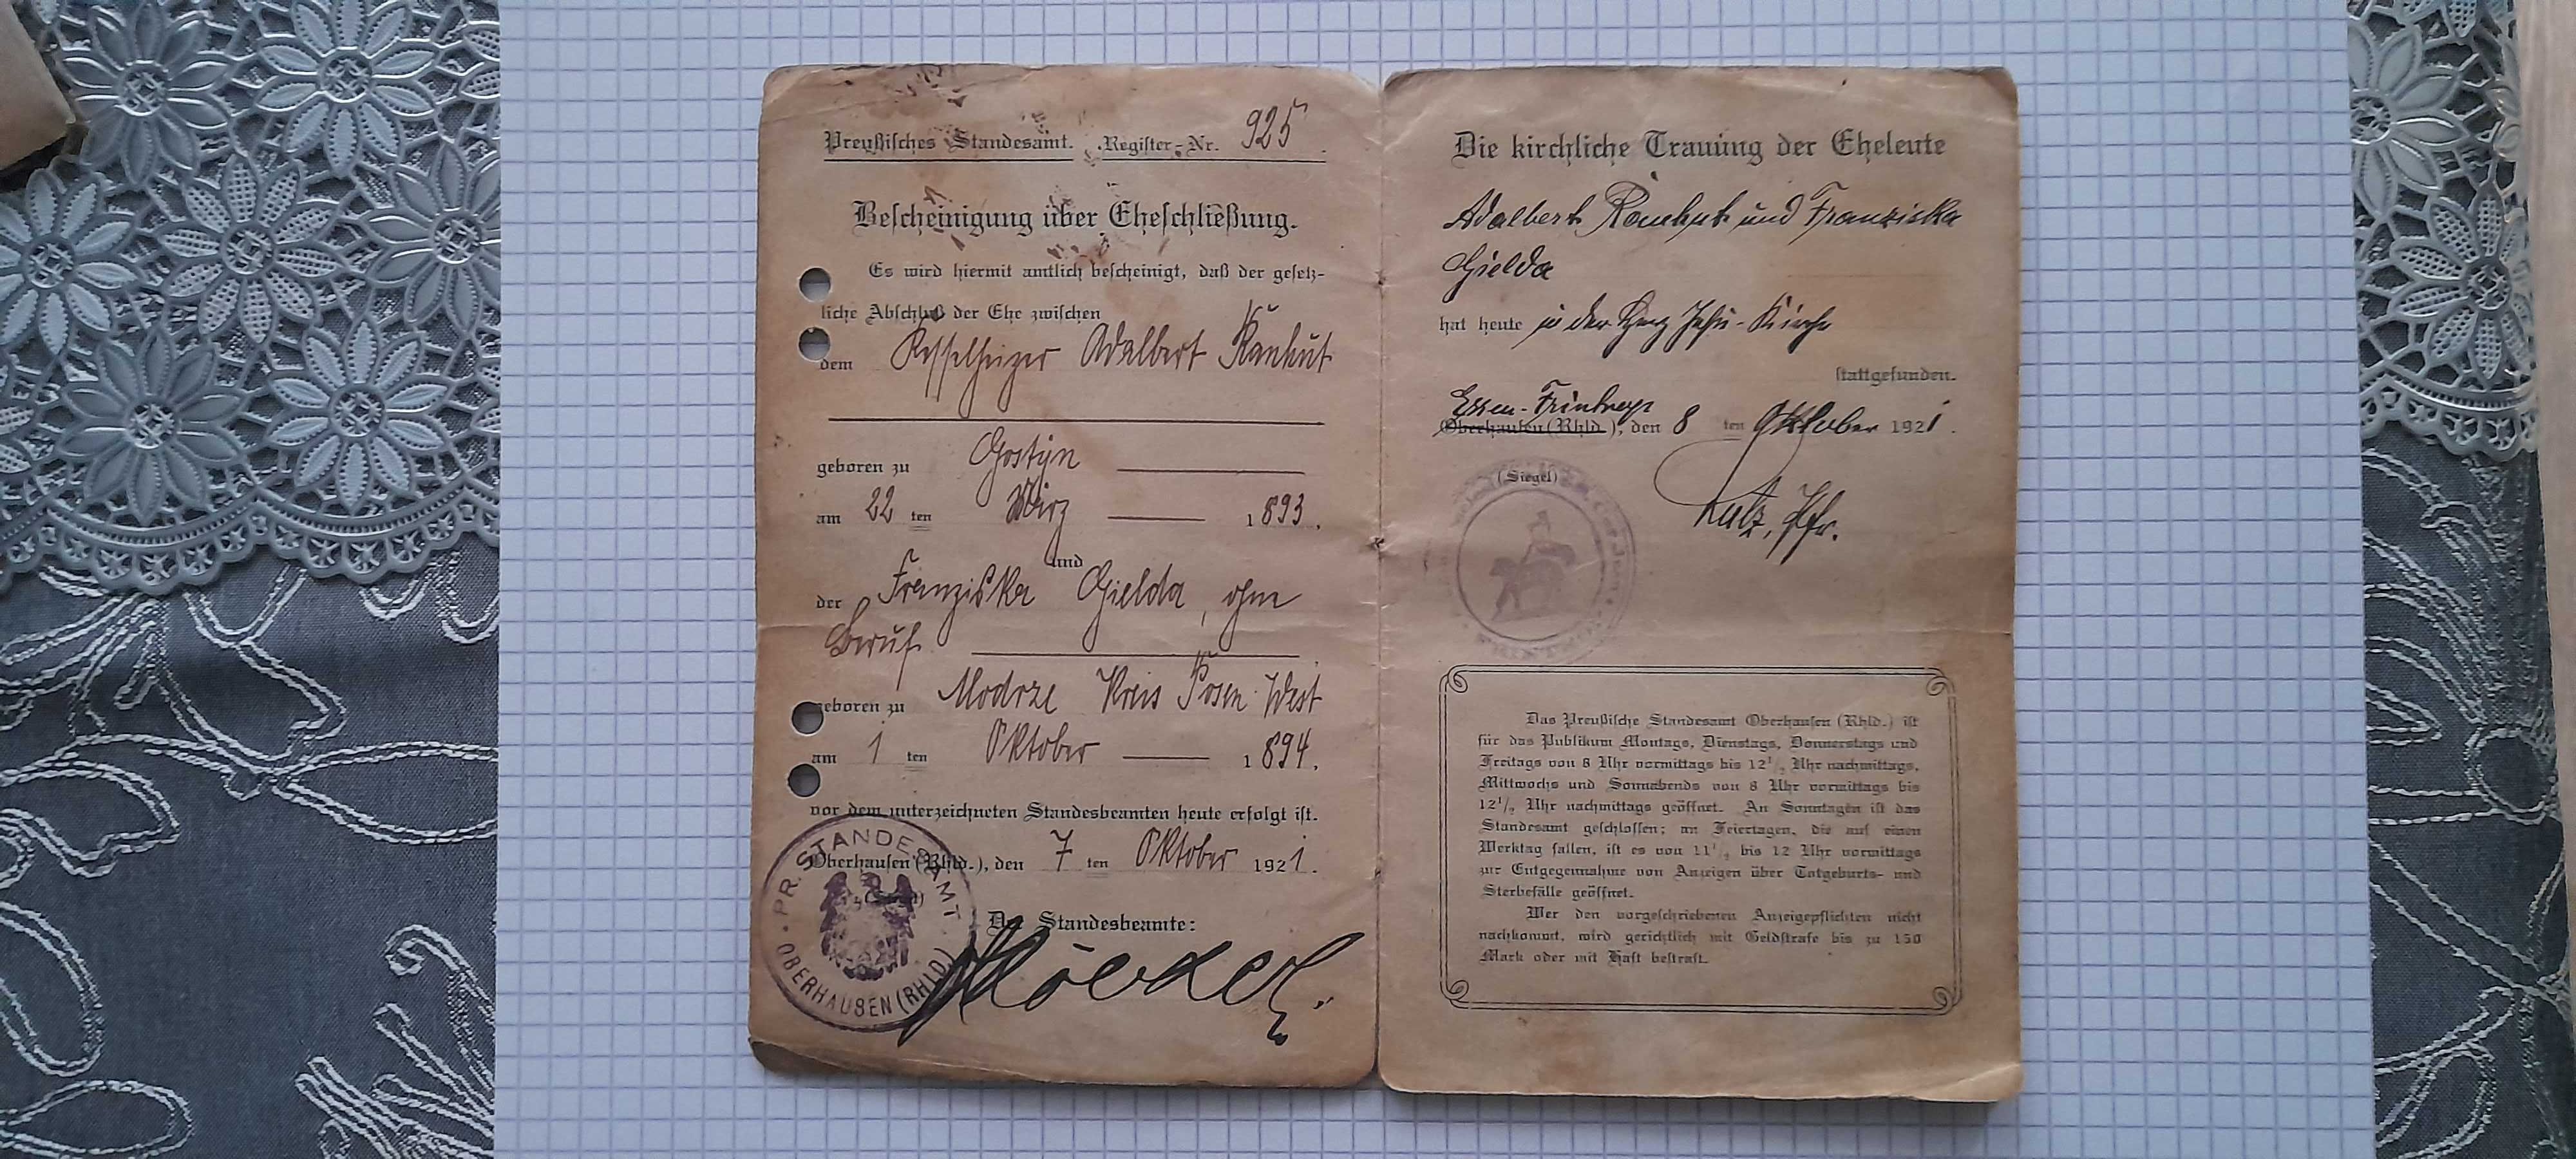 Preußisches Standesamt. Register-Nr. 925
Bescheinigung über Eheschließung.
Es wird hiermit amtlich bescheinigt, daß der gesetz-
liche Abschluß der Ehe zwischen
dem Kesselheizer Adalbert Ranhut
geboren zu Gostÿn
am 22 ten März 1893.
und
der Franziska Gielda, ohne
Beruf
geboren zu Modrze Kreis Posen West
am 1 ten Oktober 1894.
vor dem unterzeichneten Standesbeamten heute erfolgt ist.
Oberhausen (Rhld.), den 7 ten Oktober 1921.
Der Standesbeamte:
PR. STANDESAMT
OBERHAUSEN (RHLD)
Die kirchliche Trauung der Eheleute
Adalbert Ranhut und Franziska
Gielda
hat heute in der Herz Jesu-Kirche
stattgefunden.
Essen-Frintrop
Oberhausen (Rhld.), den 8 ten Oktober 1921.
(Siegel)
Pfr.
Das Preußische Standesamt Oberhausen (Rhld.) ist
für das Publikum Montags, Dienstags, Donnerstags und
Freitags von 8 Uhr vormittags bis 12½ Uhr nachmittags,
Mittwochs und Sonnabends von 8 Uhr vormittags bis
12½ Uhr nachmittags geöffnet. An Sonntagen ist das
Standesamt geschlossen; an Feiertagen, die auf einen
Werktag fallen, ist es von 11½ bis 12 Uhr vormittags
zur Entgegennahme von Anzeigen über Totgeburts- und
Sterbefälle geöffnet.
Wer den vorgeschriebenen Anzeigepflichten nicht
nachkommt, wird gerichtlich mit Geldstrafe bis zu 150
Mark oder mit Haft bestraft.